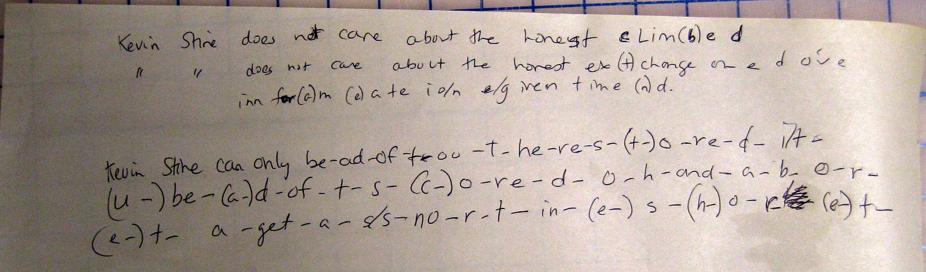 Kevin Stine does not care about the honest cLim(b)e d
" " does not care about the honest ex(t)change on e d o've
inn for(a)m (e) a te io/n e/g iven time (n)d.
Kevin Stine can only be-ad-of -t-he-re-s-(t-)o-re-d- i/t-
(u-)be-(a-)d-of-t-s-(c-)o-re-d- o-h-and-a-b-o-r-
(e-)t- a-get-a-s/s-no-r-t-in-(e-)s-(h-)o-r (e-)t-